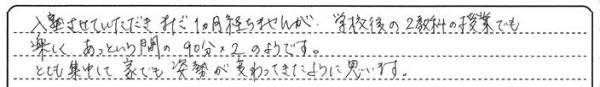 入塾させていただきまだ1ヵ月経ちませんが、学校後の2教科の授業でも
楽しく あっという間の 90分×2 のようです。
とても集中して 家でも 姿勢が変わってきたように思います。